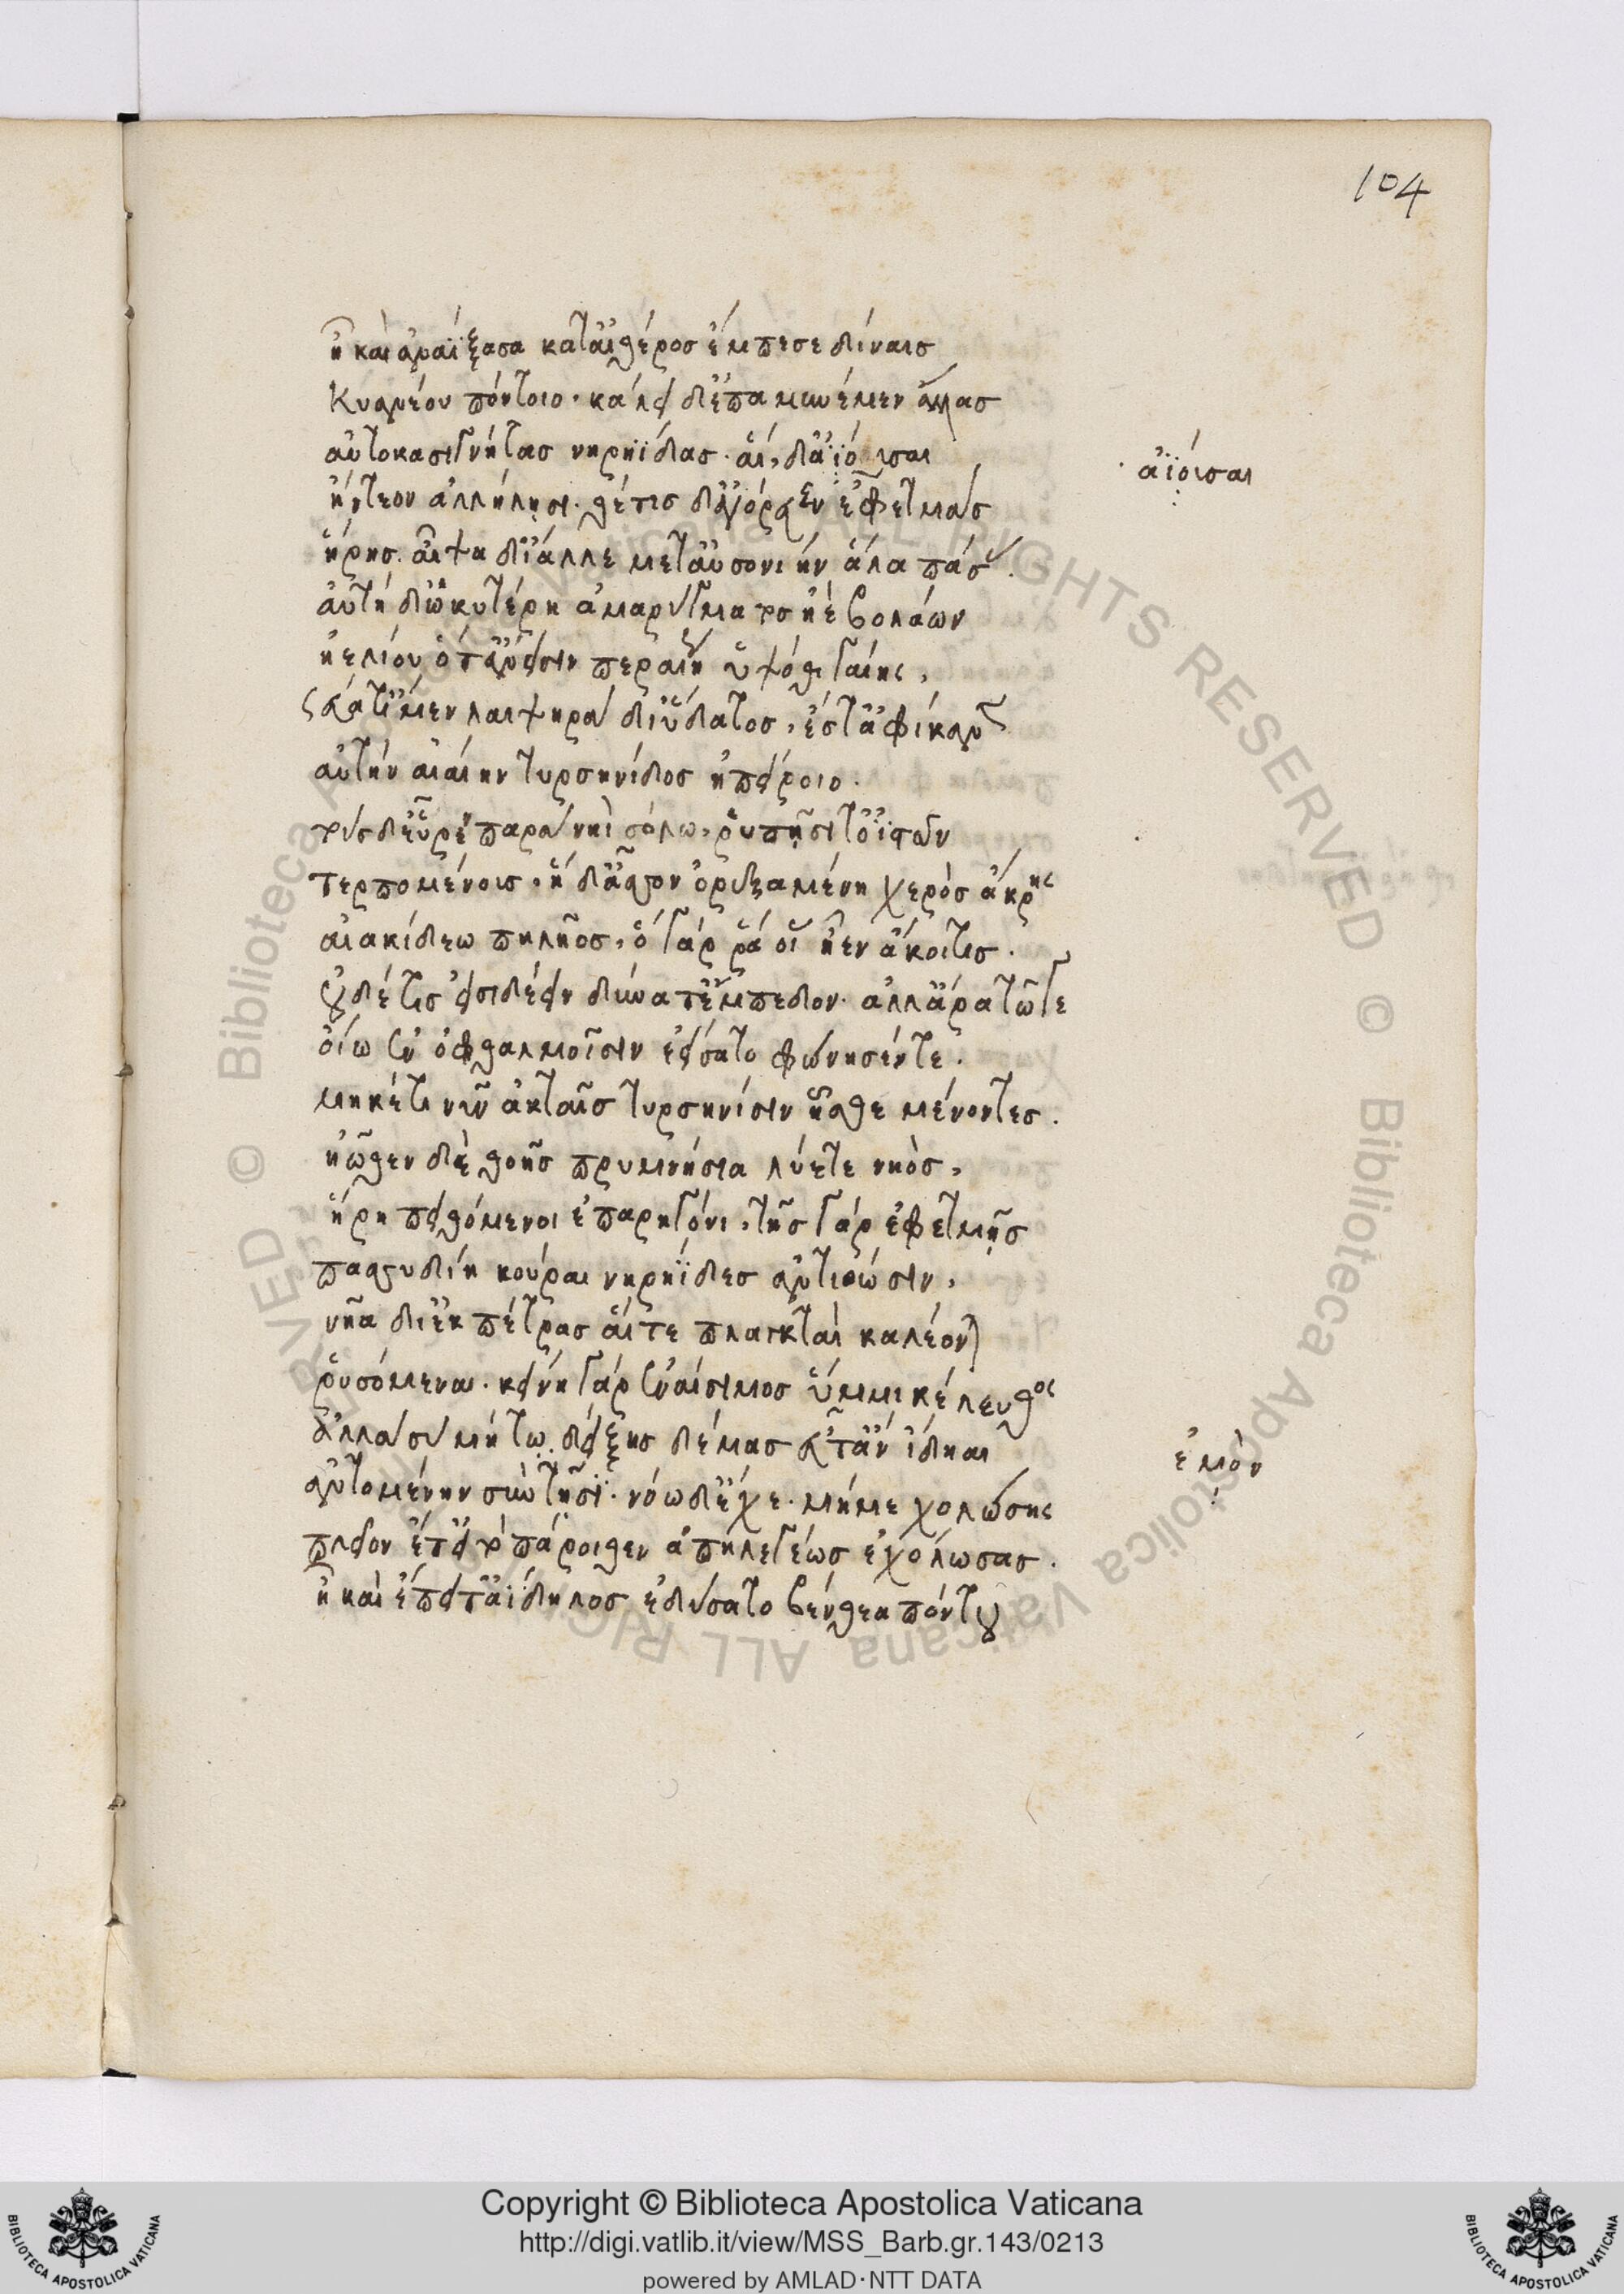 104
ἦ καὶ ἀναΐξασα κατ' αἰθέρος ἔμπεσε δίναις
Κυανέου πόντοιο. κάλει δ' ἐπαμυνέμεν ἄλλας
αὐτοκασιγνήτας νηρηίδας. αἱ δ' ἀϊόισαι
ἀϊόισαι
ἤντεον ἀλλήλῃσι. θέτις δ' ἀγόρευεν ἐφετμὰς
ἥρης. αἶψα δ' ἴαλλε μετ' αὐσονίην ἅλα πάσας.
αὐτὴ δ' ὠκυτέρη ἀμαρύγματος ἠὲ βολάων
ἠελίου ὅτ' ἄνεισιν περαίης ὑψόθι γαίης,
σεύατ' ἴμεν λαιψηρὰ δι' ὕδατος, ἔστ' ἀφίκανεν
αὐτὴν αἰαίην τυρσηνίδος ἠπείροιο.
τοὺς δ' εὗρεν παρὰ νηὶ σόλῳ, ῥιπῇσι τ' ὀϊστῶν
τερπομένοις. ἡ δ' ἆσσον ὀρεξαμένη χερὸς ἄκρης
αἰακίδεω πηλῆος, ὁ γάρ ῥά οἱ ἦεν ἀκοίτης.
οὐδέ τις εἰσιδέειν δύνατ' ἔμπεδον. ἀλλ' ἄρα τῷγε
οἴῳ ἐν ὀφθαλμοῖσιν ἐείσατο φώνησέν τε.
μηκέτι νῦν ἀκταῖς τυρσηνίσιν ἧσθε μένοντες.
ἠῶθεν δὲ θοῆς πρυμνήσια λύετε νηὸς,
ἥρῃ πειθόμενοι ἐπαρηγόνι. τῆς γὰρ ἐφετμῇς
πασσυδίῃ κούραι νηρηΐδες ἀντιόωσιν,
νῆα διὲκ πέτρας αἵ τε πλαγκταὶ καλέονται
ῥυσόμεναι. κείνη γὰρ ἐναίσιμος ὔμμι κέλευθος
ἀλλὰ σὺ μή τῳ δείξῃς δέμας εὖτ' ἂν ἴδηαι
ἐμὸν
ἀντομένην σὺν τῇσι. νόῳ δ' ἔχε. μή με χολώσῃς
πλεῖον ἔτ' ἢ τὸ πάροιθεν ἀπηλεγέως ἐχόλωσας.
ἦ καὶ ἔπειτ' ἀΐδηλος ἐδύσατο βένθεα πόντου
Copyright © Biblioteca Apostolica Vaticana
http://digi.vatlib.it/view/MSS_Barb.gr.143/0213
powered by AMLAD·NTT DATA